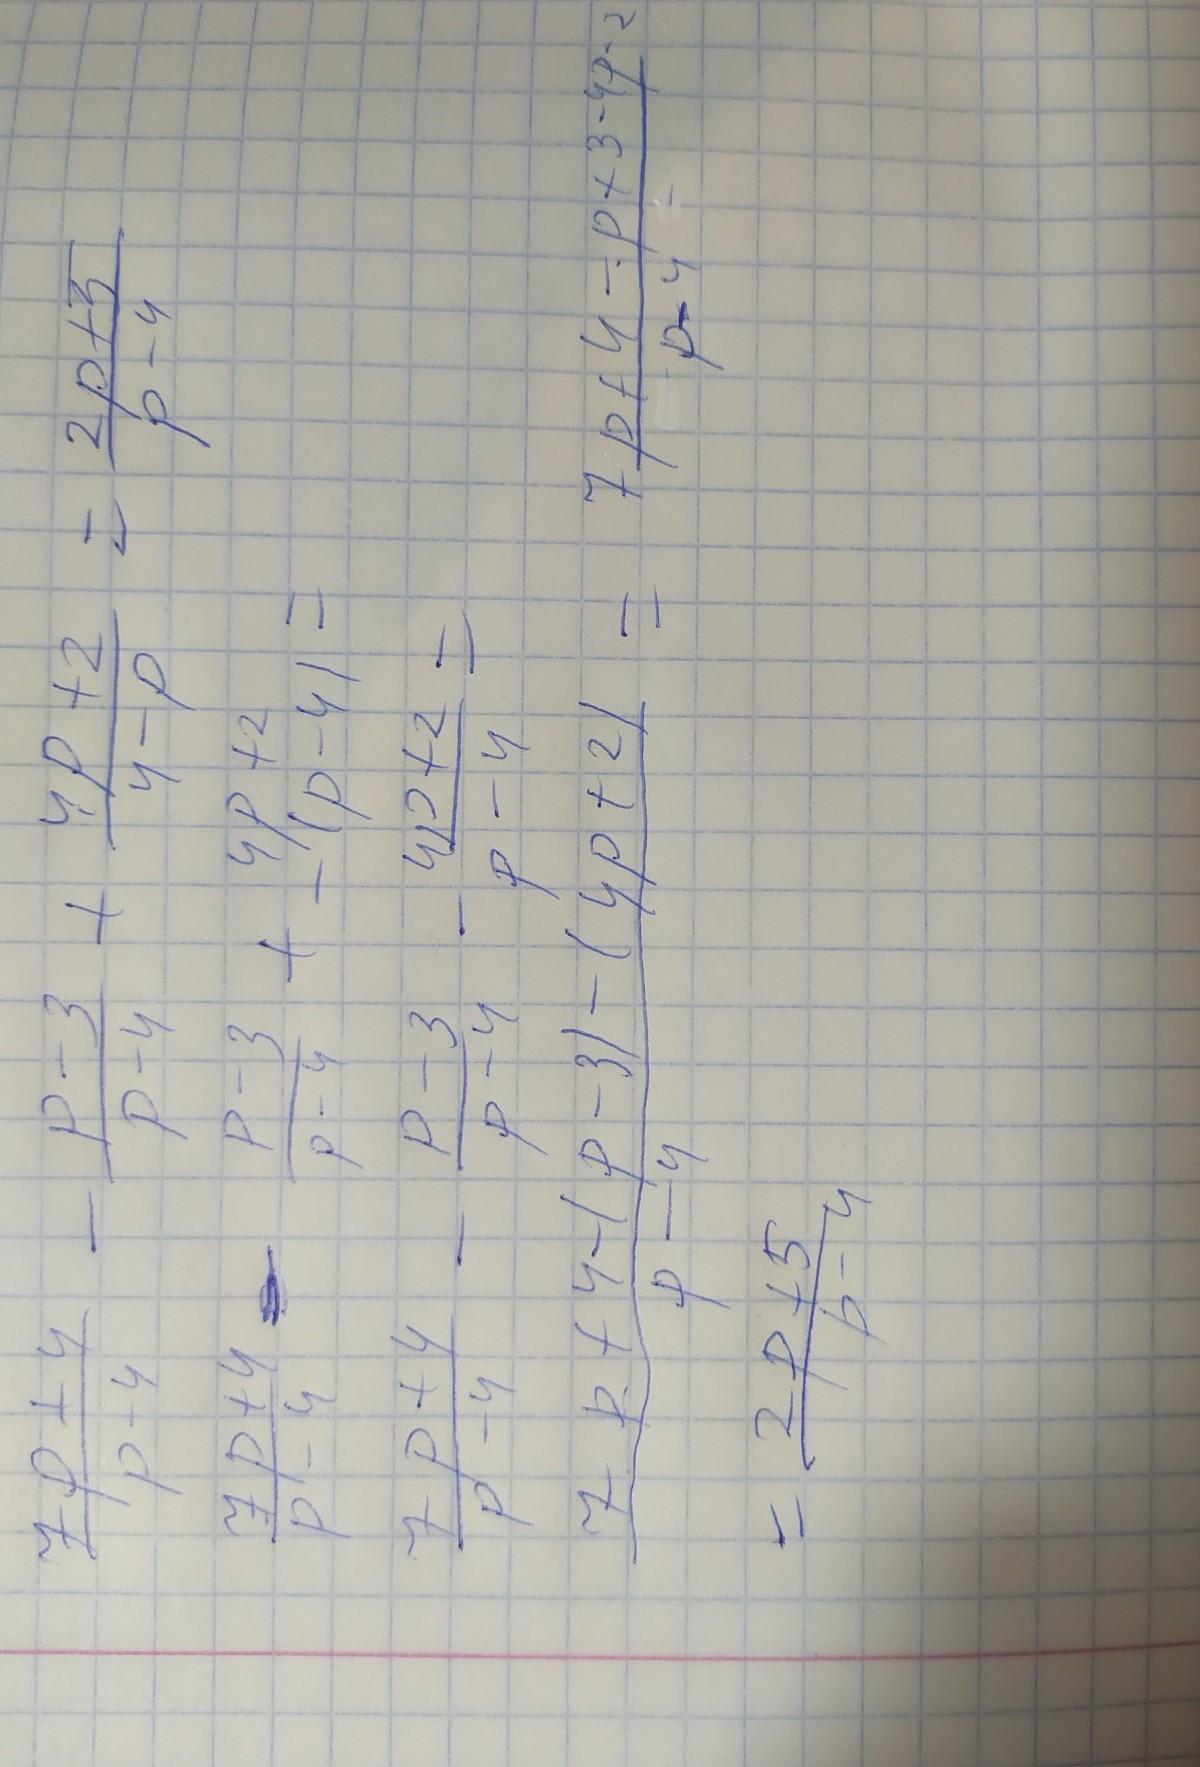 (7p+4)/(p-4) - (p-3)/(p-4) + (4p+2)/(4-p) = (2p+5)/(p-4)
(7p+4)/(p-4) - (p-3)/(p-4) + (4p+2)/(-(p-4)) =
(7p+4)/(p-4) - (p-3)/(p-4) - (4p+2)/(p-4) =
(7p+4-(p-3)-(4p+2))/(p-4) = (7p+4-p+3-4p-2)/(p-4) =
= (2p+5)/(p-4)